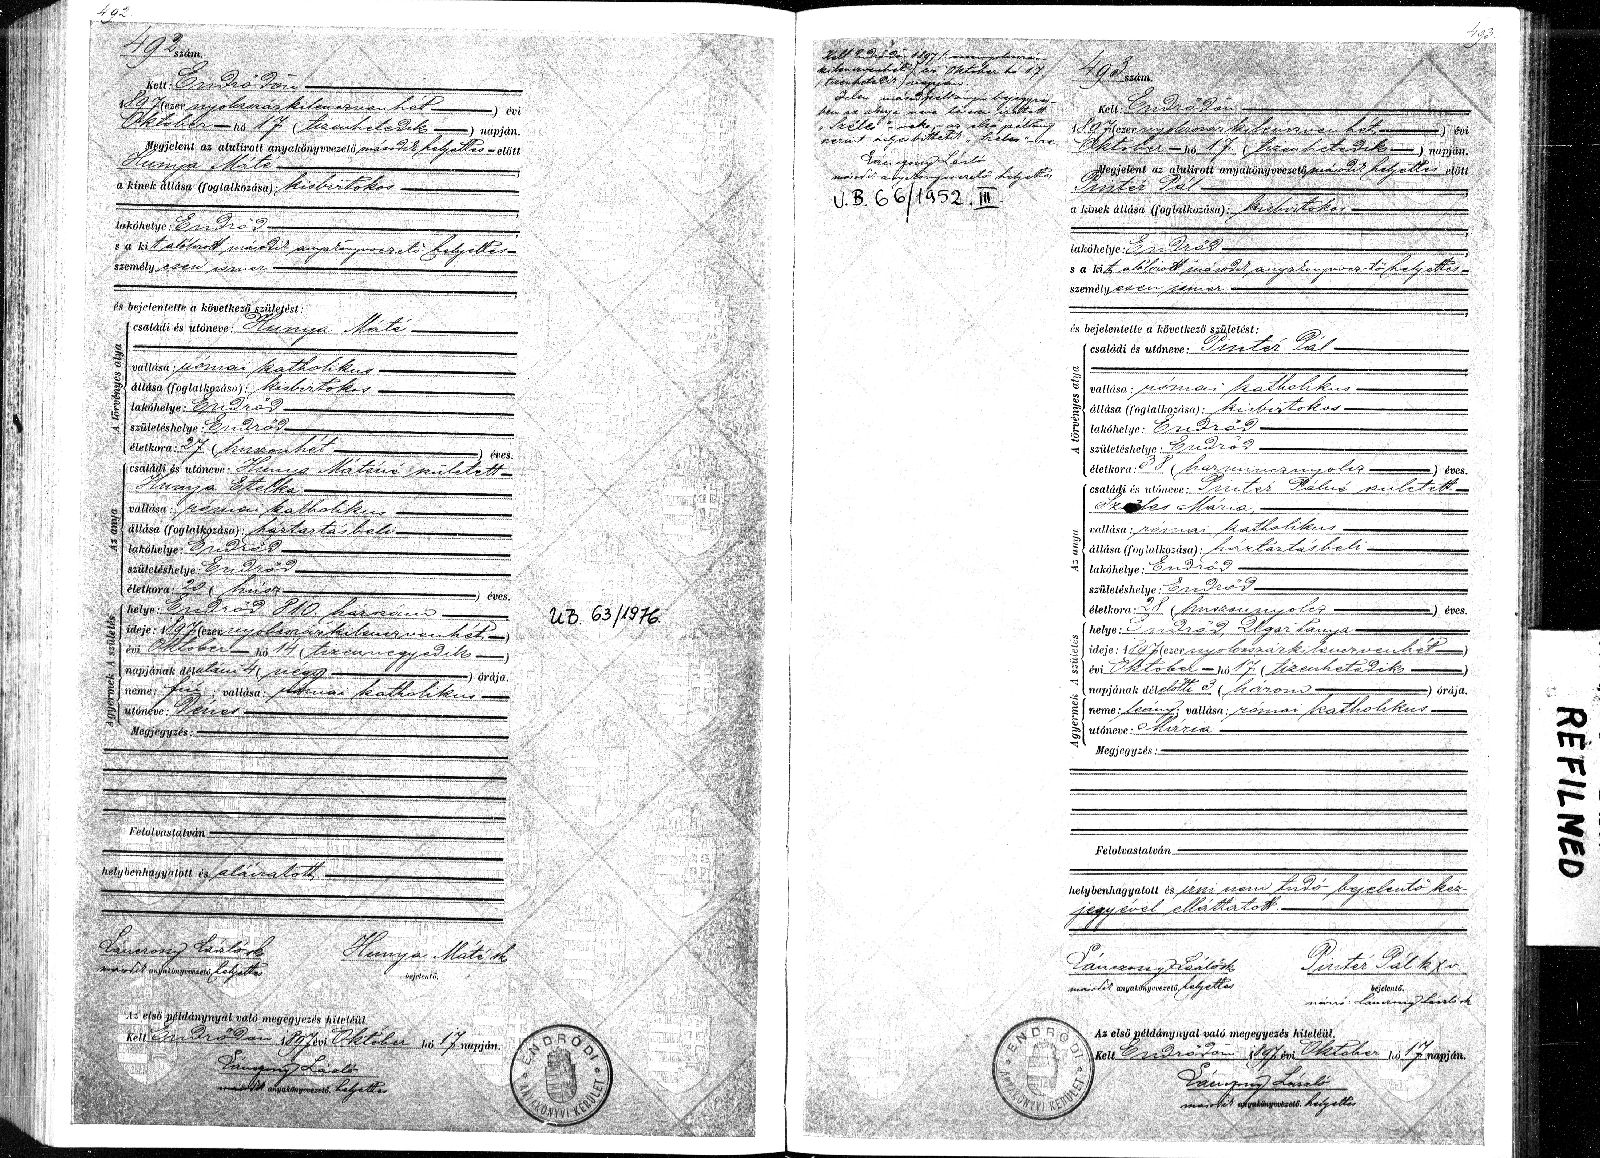 492
492 szám.
Kelt Endrődön
1897 (ezer nyolcszázkilenczvenhét) évi
Október hó 17 (tizenhetedik) napján.
Megjelent az alulirott anyakönyvvezető, második helyettes előtt
Hunya Máté
a kinek állása (foglalkozása): kisbirtokos
lakóhelye: Endrőd
s a kit alólirott második anyakönyvvezető helyettes
személyesen ismer
és bejelentette a következő születést:
A törvényes atya
családi és utóneve: Hunya Máté
vallása: római katholikus
állása (foglalkozása): kisbirtokos
lakóhelye: Endrőd
születéshelye: Endrőd
életkora: 27 (huszonhét) éves.
Az anya
családi és utóneve: Hunya Máténé született
Hunya Etelka
vallása: római katholikus
állása (foglalkozása): háztartásbeli
lakóhelye: Endrőd
születéshelye: Endrőd
életkora: 20 (húsz) éves.
A születés
helye: Endrőd 810. házszám
ideje: 1897 (ezer nyolcszázkilenczvenhét)
évi Október hó 14 (tizennegyedik)
napjának délutáni 4 (négy) órája.
A gyermek
neme: fiú; vallása: római katholikus
utóneve: Dénes
Megjegyzés:
Felolvastatván
helybenhagyatott és aláiratott
Lánczony László sk
második anyakönyvvezető, helyettes
Hunya Máté sk
bejelentő.
Az első példánynyal való megegyezés hiteléül
Kelt Endrődön 1897 évi Október hó 17 napján.
Lánczony László
második anyakönyvvezető. helyettes
ENDRŐDI
ANYAKÖNYVI KERÜLET
U.B. 63/1976.
493
Kelt Endrődön 1897
évi Október hó 17
(tizenhetedik) napján.
Lánczony László
második anyakönyvvezető helyettes
U.B. 66/1952. III.
493 szám.
Kelt Endrődön
1897 (ezer nyolcszázkilenczvenhét) évi
Október hó 17 (tizenhetedik) napján.
Megjelent az alulirott anyakönyvvezető, második helyettes előtt
Pintér Pál
a kinek állása (foglalkozása): kisbirtokos
lakóhelye: Endrőd
s a kit alólirott második anyakönyvvezető helyettes
személyesen ismer
és bejelentette a következő születést:
A törvényes atya
családi és utóneve: Pintér Pál
vallása: római katholikus
állása (foglalkozása): kisbirtokos
lakóhelye: Endrőd
születéshelye: Endrőd
életkora: 38 (harmincznyolcz) éves.
Az anya
családi és utóneve: Pintér Pálné született
Mária
vallása: római katholikus
állása (foglalkozása): háztartásbeli
lakóhelye: Endrőd
születéshelye: Endrőd
életkora: 28 (huszonnyolcz) éves.
A születés
helye: Endrőd, Ugar tanya
ideje: 1897 (ezer nyolcszázkilenczvenhét)
évi Október hó 17 (tizenhetedik)
napjának délelőtti 3 (három) órája.
A gyermek
neme: leány; vallása: római katholikus
utóneve: Mária
Megjegyzés:
Felolvastatván
helybenhagyatott és irni nem tudó bejelentő kéz-
jegyével elláttatott.
Lánczony László sk
második anyakönyvvezető, helyettes
Pintér Pál k x v.
bejelentő.
Lánczony László sk
Az első példánynyal való megegyezés hiteléül.
Kelt Endrődön 1897 évi Október hó 17 napján.
Lánczony László
második anyakönyvvezető. helyettes
ENDRŐDI
ANYAKÖNYVI KERÜLET
REFILMED